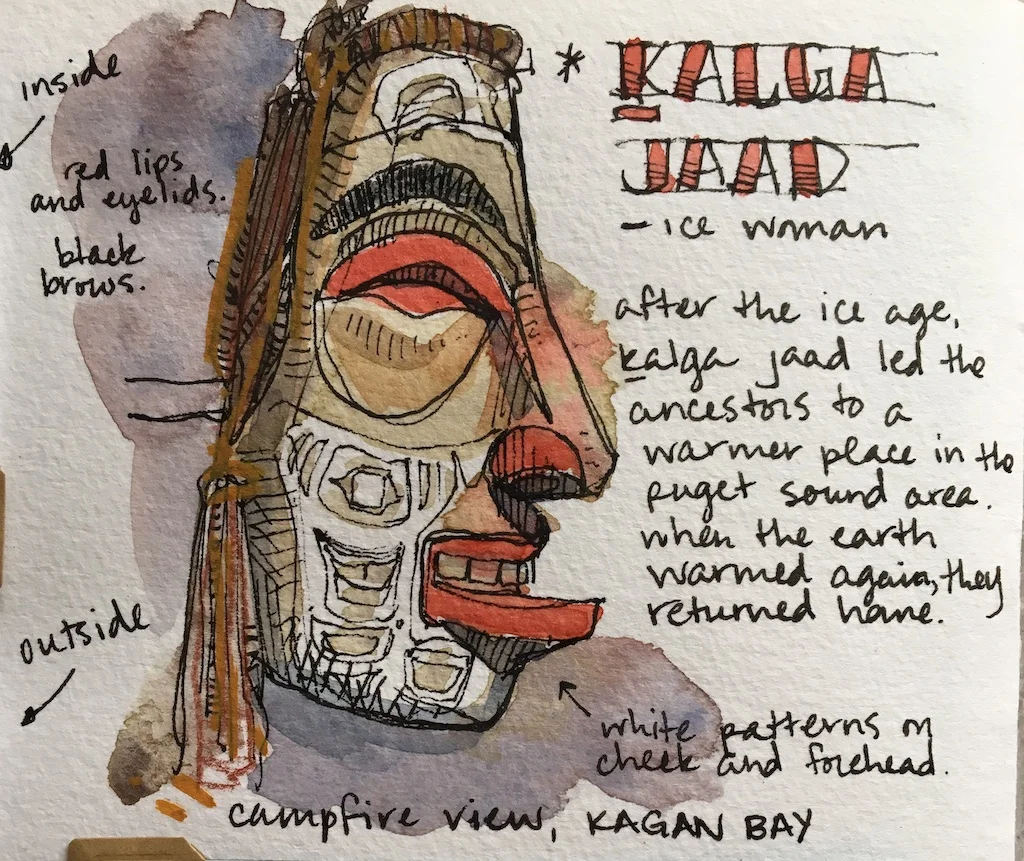 inside
red lips
and eyelids.
black
brows.
outside
* KALGA
JAAD
- ice woman
after the ice age,
kalga jaad led the
ancestors to a
warmer place in the
puget sound area.
when the earth
warmed again, they
returned home.
white patterns on
cheek and forehead.
campfire view, KAGAN BAY